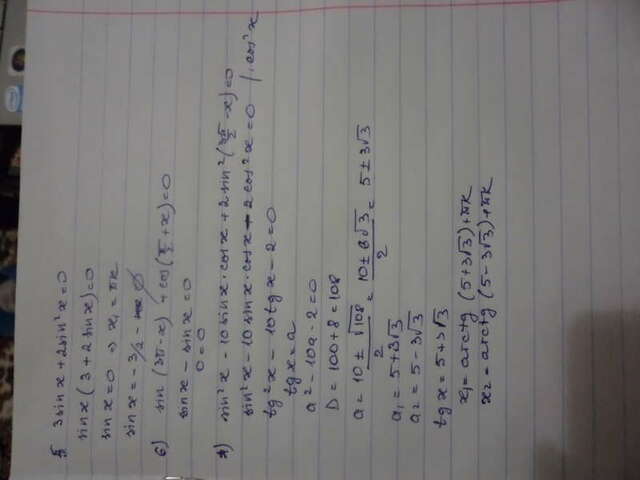 5 3sinx+2sin²x=0
sinx(3+2sinx)=0
sinx=0 → x₁=πk
sinx=-3/2 - ∅
6) sin(3π-x)+cos(π/2+x)=0
sinx-sinx=0
0=0
sin²x-10sinx·cosx+2sin²(3π/2-x)=0
sin²x-10sinx·cosx-2cos²x=0 |:cos²x
tg²x-10tgx-2=0
tgx=a
a²-10a-2=0
D=100+8=108
a=10±√108/2=10±6√3/2=5±3√3
a₁=5+3√3
a₂=5-3√3
tgx=5+3√3
x₁=arctg(5+3√3)+πk
x₂=arctg(5-3√3)+πk